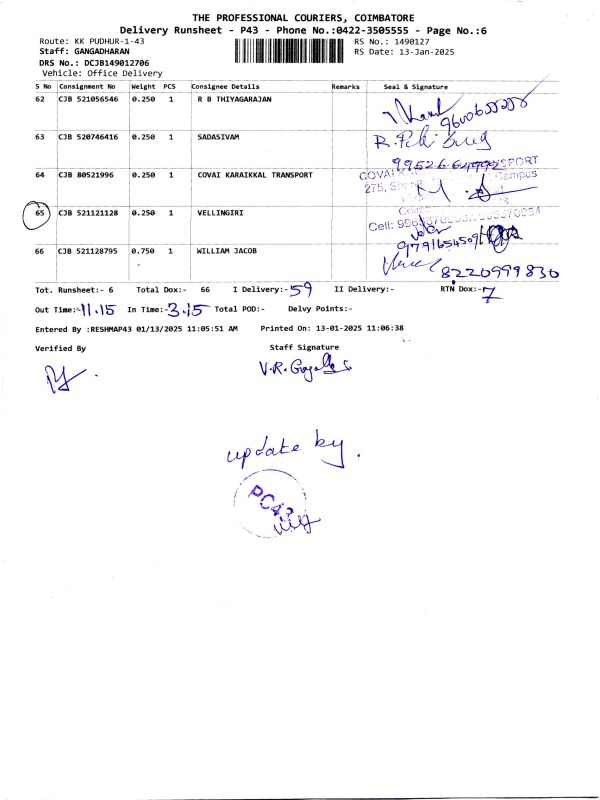 THE PROFESSIONAL COURIERS, COIMBATORE
Delivery Runsheet - P43 - Phone No.:0422-3505555 - Page No.:6
Route: KK PUDHUR-1-43 RS No.: 1490127
Staff: GANGADHARAN RS Date: 13-Jan-2025
DRS No.: DCJB149012706
Vehicle: Office Delivery
S No Consignment No Weight PCS Consignee Details Remarks Seal & Signature
62 CJB 521056546 0.250 1 R B THIYAGARAJAN
9600655255
63 CJB 520746416 0.250 1 SADASIVAM
9952664992
64 CJB 80521996 0.250 1 COVAI KARAIKKAL TRANSPORT COVAI SPORT
275, Campus
65 CJB 521121128 0.250 1 VELLINGIRI
Cell:
9791654509
66 CJB 521128795 0.750 1 WILLIAM JACOB
8220999830
Tot. Runsheet:- 6 Total Dox:- 66 I Delivery:- 59 II Delivery:- RTN Dox:- 7
Out Time:- 11.15 In Time:- 3.15 Total POD:- Delvy Points:-
Entered By :RESHMAP43 01/13/2025 11:05:51 AM Printed On: 13-01-2025 11:06:38
Verified By Staff Signature
update by.
PC43